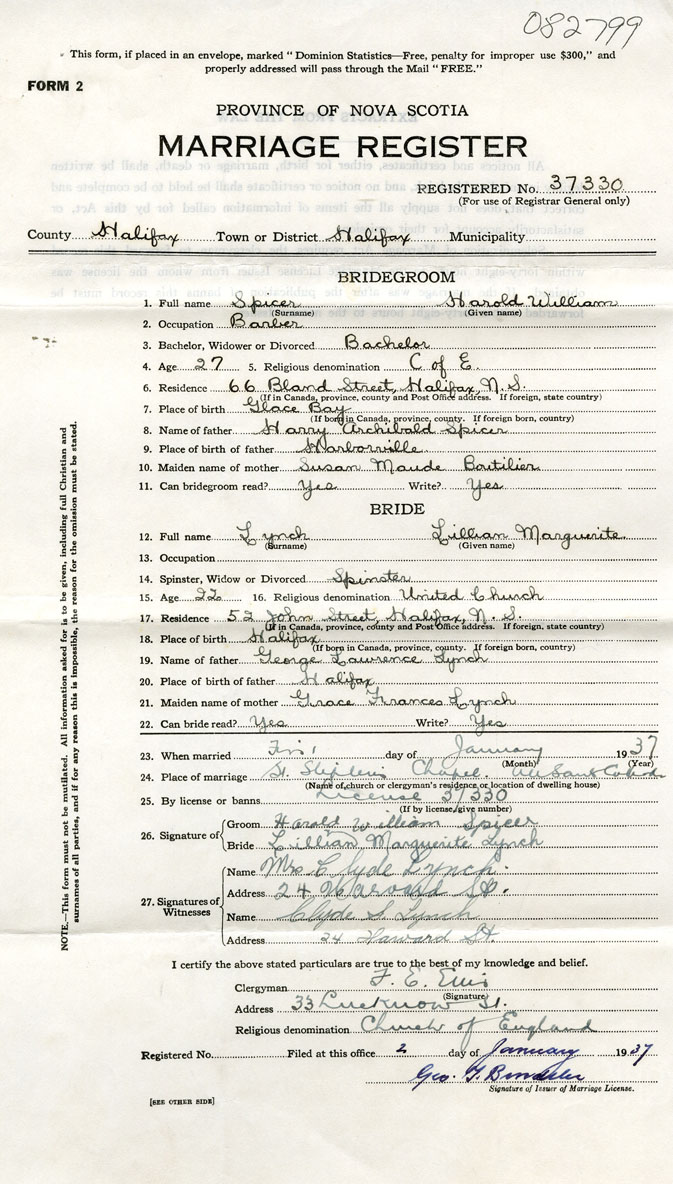 082799
This form, if placed in an envelope, marked "Dominion Statistics—Free, penalty for improper use $300," and
properly addressed will pass through the Mail "FREE."
FORM 2
PROVINCE OF NOVA SCOTIA
MARRIAGE REGISTER
REGISTERED No. 37330
(For use of Registrar General only)
County Halifax Town or District Halifax Municipality
BRIDEGROOM
1. Full name Spicer Harold William
(Surname) (Given name)
2. Occupation Barber
3. Bachelor, Widower or Divorced Bachelor
4. Age 27 5. Religious denomination C of E.
6. Residence 66 Bland Street, Halifax, N.S.
(If in Canada, province, county and Post Office address. If foreign, state country)
7. Place of birth Glace Bay
(If born in Canada, province, county. If foreign born, country)
8. Name of father Harry Archibald Spicer
9. Place of birth of father Harborville
10. Maiden name of mother Susan Maude Boutilier
11. Can bridegroom read? Yes Write? Yes
BRIDE
12. Full name Lynch Lillian Marguerite
(Surname) (Given name)
13. Occupation
14. Spinster, Widow or Divorced Spinster
15. Age 22 16. Religious denomination United Church
17. Residence 52 John Street, Halifax, N.S.
(If in Canada, province, county and Post Office address. If foreign, state country)
18. Place of birth Halifax
(If born in Canada, province, county. If foreign born, country)
19. Name of father George Lawrence Lynch
20. Place of birth of father Halifax
21. Maiden name of mother Grace Frances Lynch
22. Can bride read? Yes Write? Yes
23. When married First day of January 1937
(Month) (Year)
24. Place of marriage St. Stephens Chapel.
(Name of church or clergyman's residence or location of dwelling house)
25. By license or banns License 37330
(If by license, give number)
26. Signature of Groom Harold William Spicer
Bride Lillian Marguerite Lynch
27. Signatures of Witnesses Name Mrs Clyde Lynch.
Address 24 Harvard St.
Name Clyde S. Lynch
Address 24 Harvard St.
I certify the above stated particulars are true to the best of my knowledge and belief.
Clergyman F. E. Ellis
(Signature)
Address 33 Lucknow St.
Religious denomination Church of England
Registered No. Filed at this office 2 day of January 1937
Geo. 
Signature of Issuer of Marriage License.
[SEE OTHER SIDE]
NOTE.—This form must not be mutilated. All information asked for is to be given, including full Christian and
surnames of all parties, and if for any reason this is impossible, the reason for the omission must be stated.